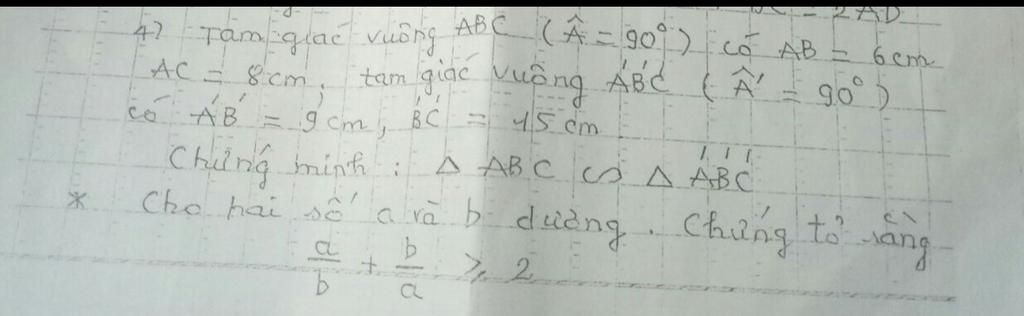 = 2AD
4) Tam giác vuông ABC (Â = 90°) có AB = 6cm
AC = 8cm, tam giác vuông A'B'C' (Â' = 90°)
có A'B' = 9cm, B'C' = 15cm
Chứng minh : Δ ABC ∽ Δ A'B'C'
* Cho hai số a và b dương. Chứng tỏ rằng
a/b + b/a ≥ 2